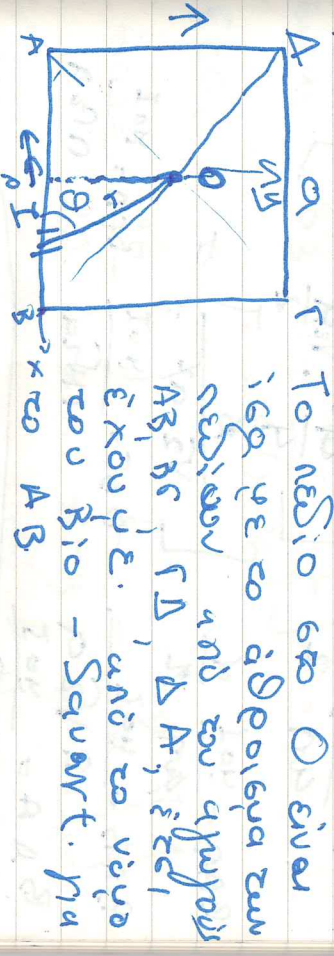 Δ
Q
Γ
Ο
r
θ
Α
ρ
I
Β
x
Το πεδίο στο Ο είναι
ίσο με το άθροισμα των
πεδίων από του αγωγούς
ΑΒ, ΒΓ, ΓΔ, ΔΑ, έτσι
έχουμε. από το νόμο
του Βio - Savart. για
το ΑΒ.